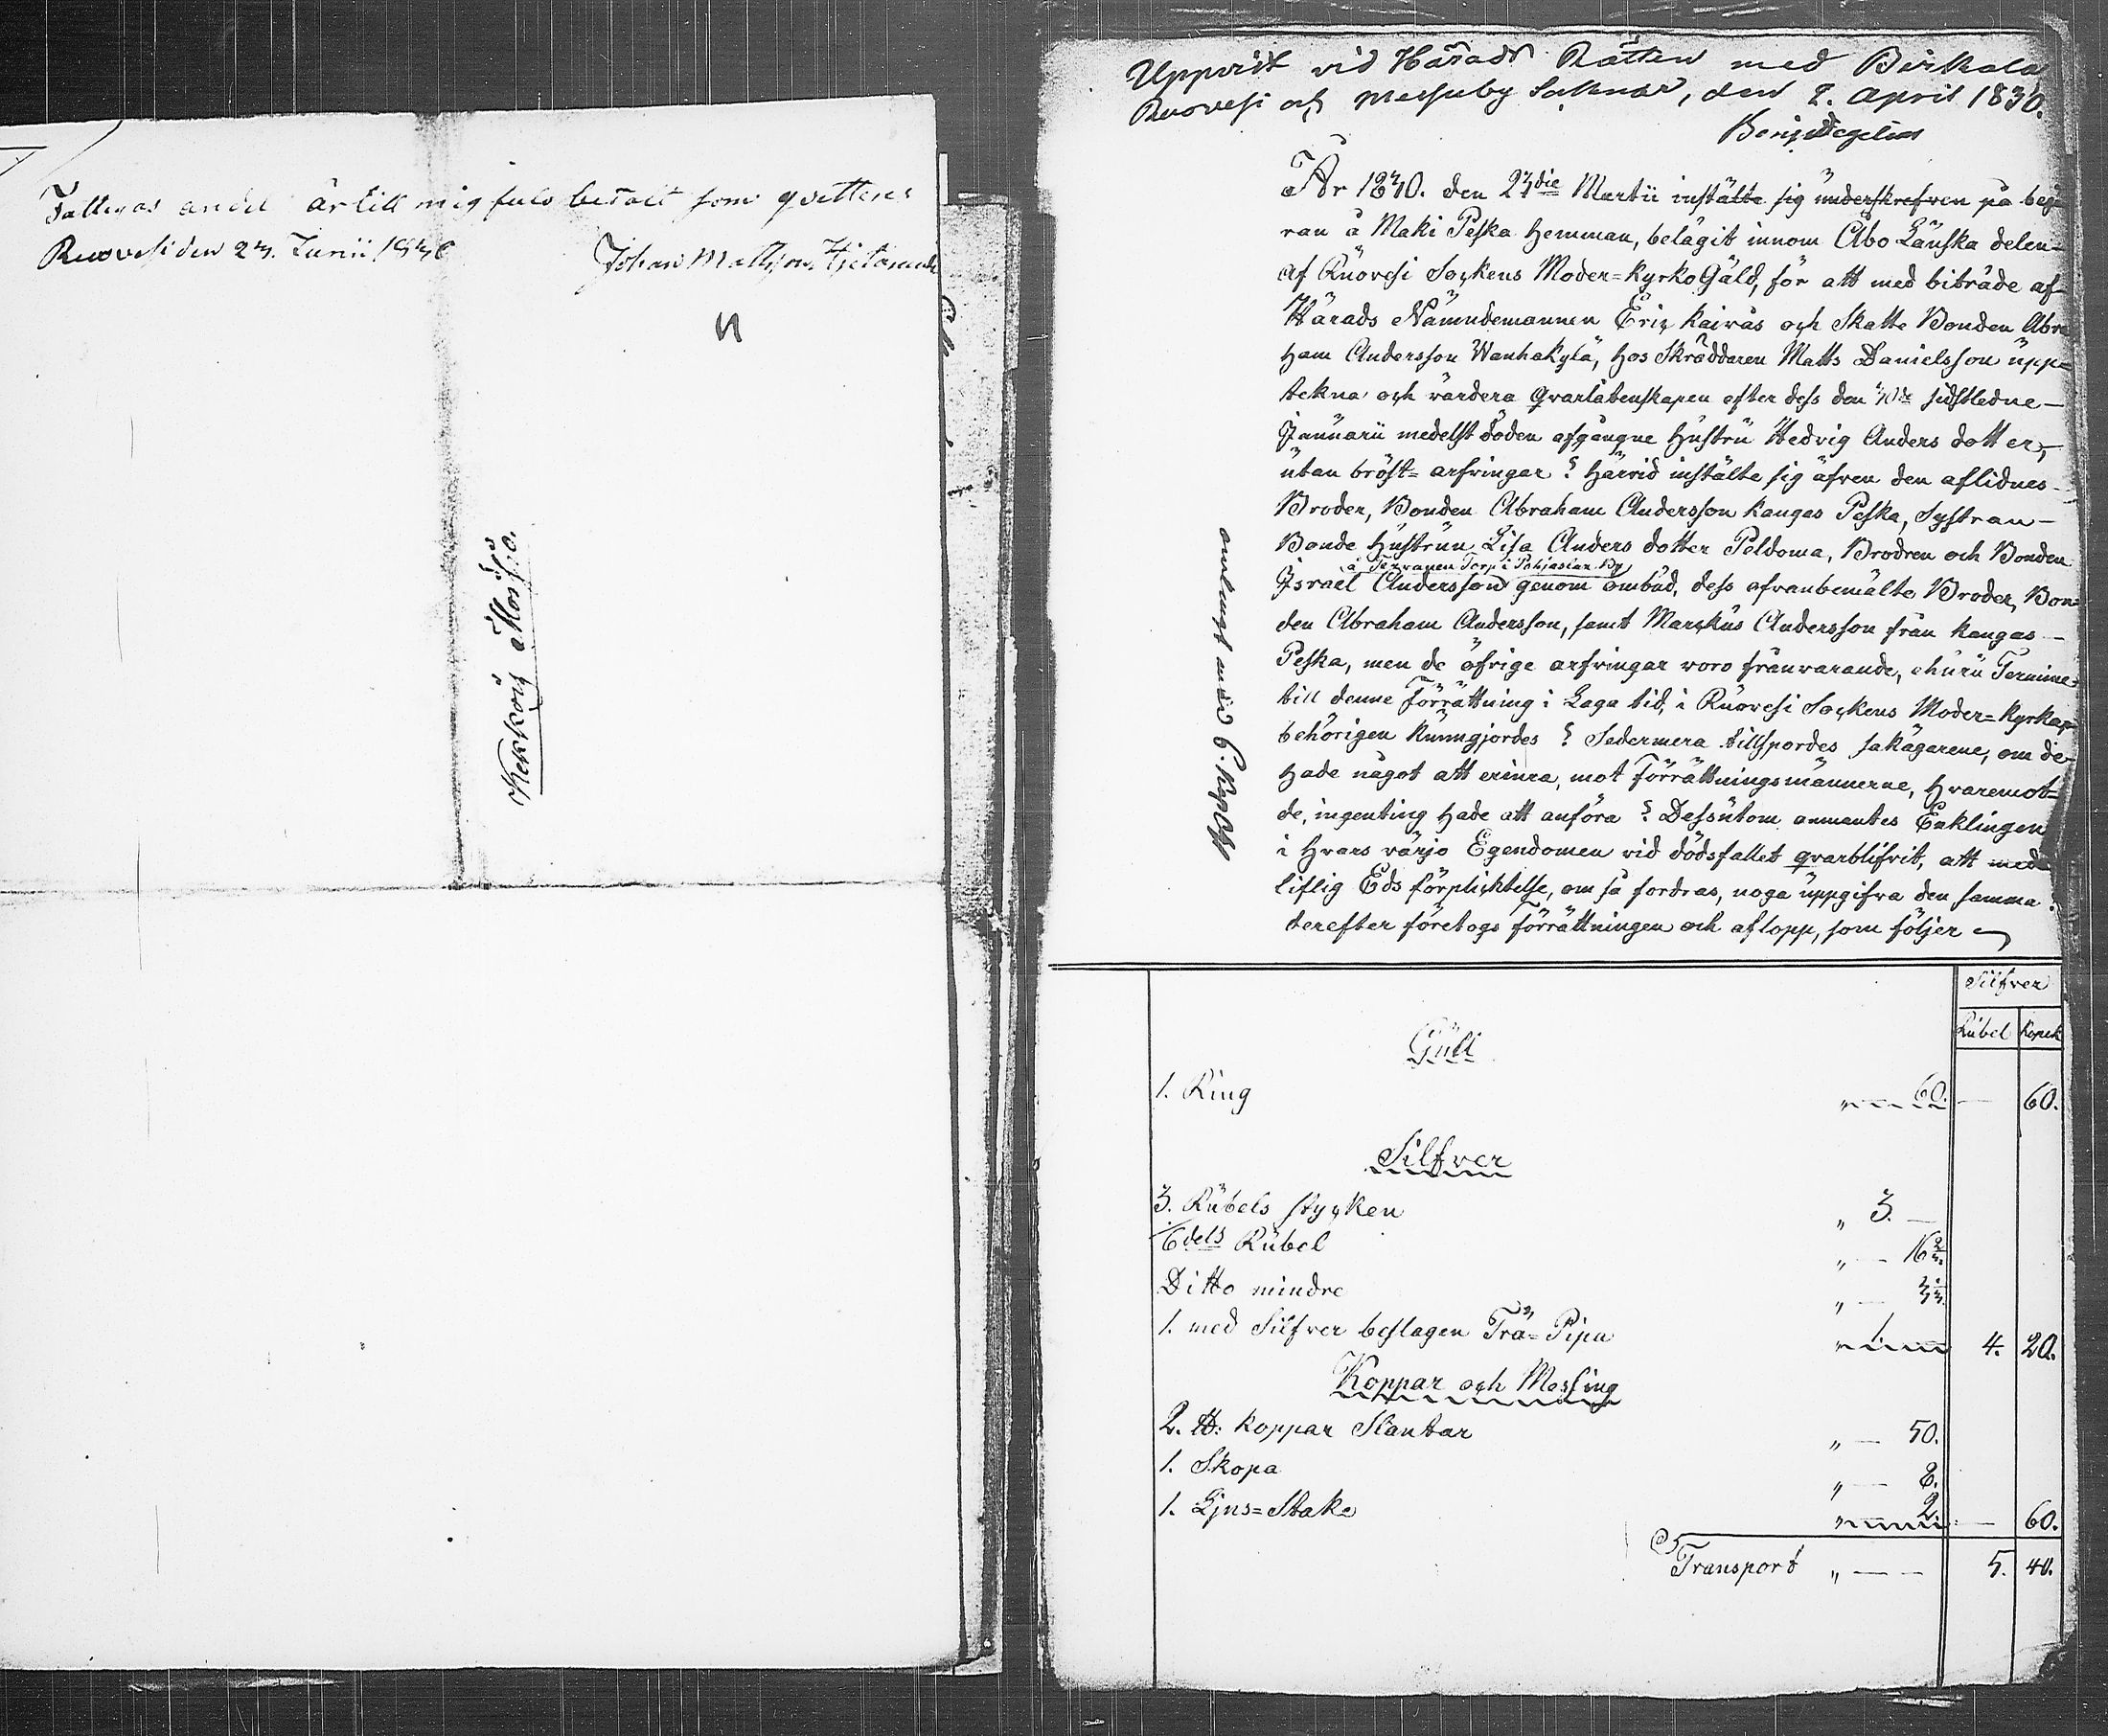 Fattigas andel är till mig fult betalt som qvitteras
Ruovesi den 23. Junii 1830
Johan Mattsson
N
Uppvist vid Härads Rätten med Birkala
Ruovesi och Messuby Soknar, den 2. April 1830.
År 1830. den 23die Martii instälte sig underskrefven på begä-
ran å Maki Peska Hemman, belägit innom Åbo Länska delen
af Ruovesi Sockens Moder=kyrko Gäld, för att med biträde af
Härads Nämndemannen Eric Kaivos och Skatte Bonden Abra
ham Andersson Wanhakylä, hos Skräddaren Matts Danielsson upp=
tekna och värdera Qvarlåtenskapen efter dess den 30de sidstledne
Januarii medelst döden afgångne Hustru Hedvig Anders dotter,
utan bröst=arfvingar. Härvid instälte sig äfven den aflidnes
Broder, Bonden Abraham Andersson Kangas Peska, Systran
Bonde Hustrun Lisa Anders dotter Peldoma, Brodren och Bonden
å Terranen Torp i Pohjaslax By
Israel Andersson genom ombud, dess ofvanbemälte Broder, Bon=
den Abraham Andersson, samt Marckus Andersson från Kangas
Peska, men de öfrige arfvingar voro frånvarande, ehuru Termine
till denne Förrättning i Laga tid, i Ruovesi Sockens Moder=kyrka
behörigen kungjordes. Sedermera tillspordes sakägarene, om de
hade något att erinra, mot Förrättningsmännerne, hvaremot
de, ingenting hade att anföra. Dessutom anmantes Enklingen
i hvars värjo Egendomen vid dödsfallet qvarblifvit, att med
liflig Eds förplichtelse, om så fordras, noga uppgifva den samma.
derefter företogs Förrättningen och aflopp, som följer
Silfver
Rubel Kopek
Gull
1. Ring " 60. — 60.
Silfver
3. Rubels stycken " 3. —
6dels Rubel " — 16 2/3
Ditto mindre " — 3 1/3
1. med Silfver beslagen Trä=Pipa " 1. 4. 20.
Koppar och Messing
2. ℔: Koppar Slantar " — 50.
1. Skopa " — 8.
1. Ljus=Stake " 2. — 60.
Transport " — — 5. 40.